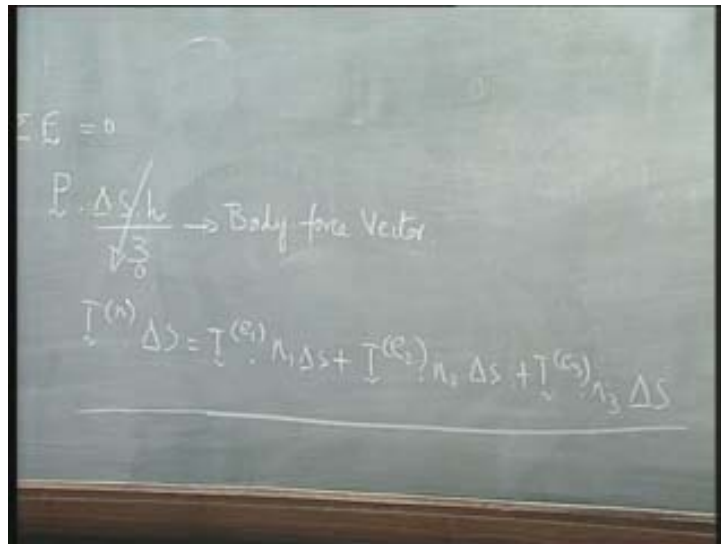 Σ F = 0
P . ΔS.h / 3 → Body force Vector
0
T^(n) ΔS = T^(e₁) n₁ ΔS + T^(e₂) n₂ ΔS + T^(e₃) n₃ ΔS